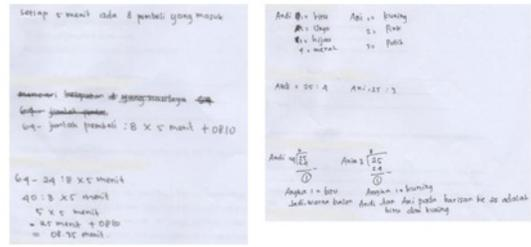 setiap 5 menit ada 8 pembeli yang masuk
64 - jumlah pembeli : 8 x 5 menit + 0810
64 - 24 : 8 x 5 menit
40 : 8 x 5 menit
5 x 5 menit
= 25 menit + 0810
= 08.35 menit
Andi 1 = biru
2 = Ungu
3 = hijau
4 = merah
Ani 1 = kuning
2 = Pink
3 = Putih
Andi = 25 : 4
Ani = 25 : 3
Andi 4 25
24
1
Ani 3 25
24
1
Angka 1 = biru
Angka 1 = kuning
Jadi warna balon Andi dan Ani pada barisan ke 25 adalah
biru dan kuning